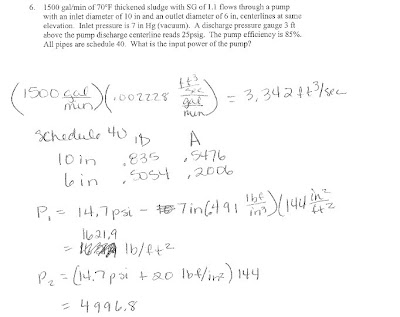 6. 1500 gal/min of 70°F thickened sludge with SG of 1.1 flows through a pump
with an inlet diameter of 10 in and an outlet diameter of 6 in, centerlines at same
elevation. Inlet pressure is 7 in Hg (vacuum). A discharge pressure gauge 3 ft
above the pump discharge centerline reads 25psig. The pump efficiency is 85%.
All pipes are schedule 40. What is the input power of the pump?
(1500 gal/min)(.002228 ft3/sec / gal/min) = 3.342 ft3/sec
Schedule 40 ID A
10 in .835 .5476
6 in .5054 .2006
P1 = 14.7 psi - 7in(.491 lbf/in3)(144 in2/ft2
1621.9
= lb/ft2
P2 = (14.7 psi + 20 lbf/in2) 144
= 4996.8